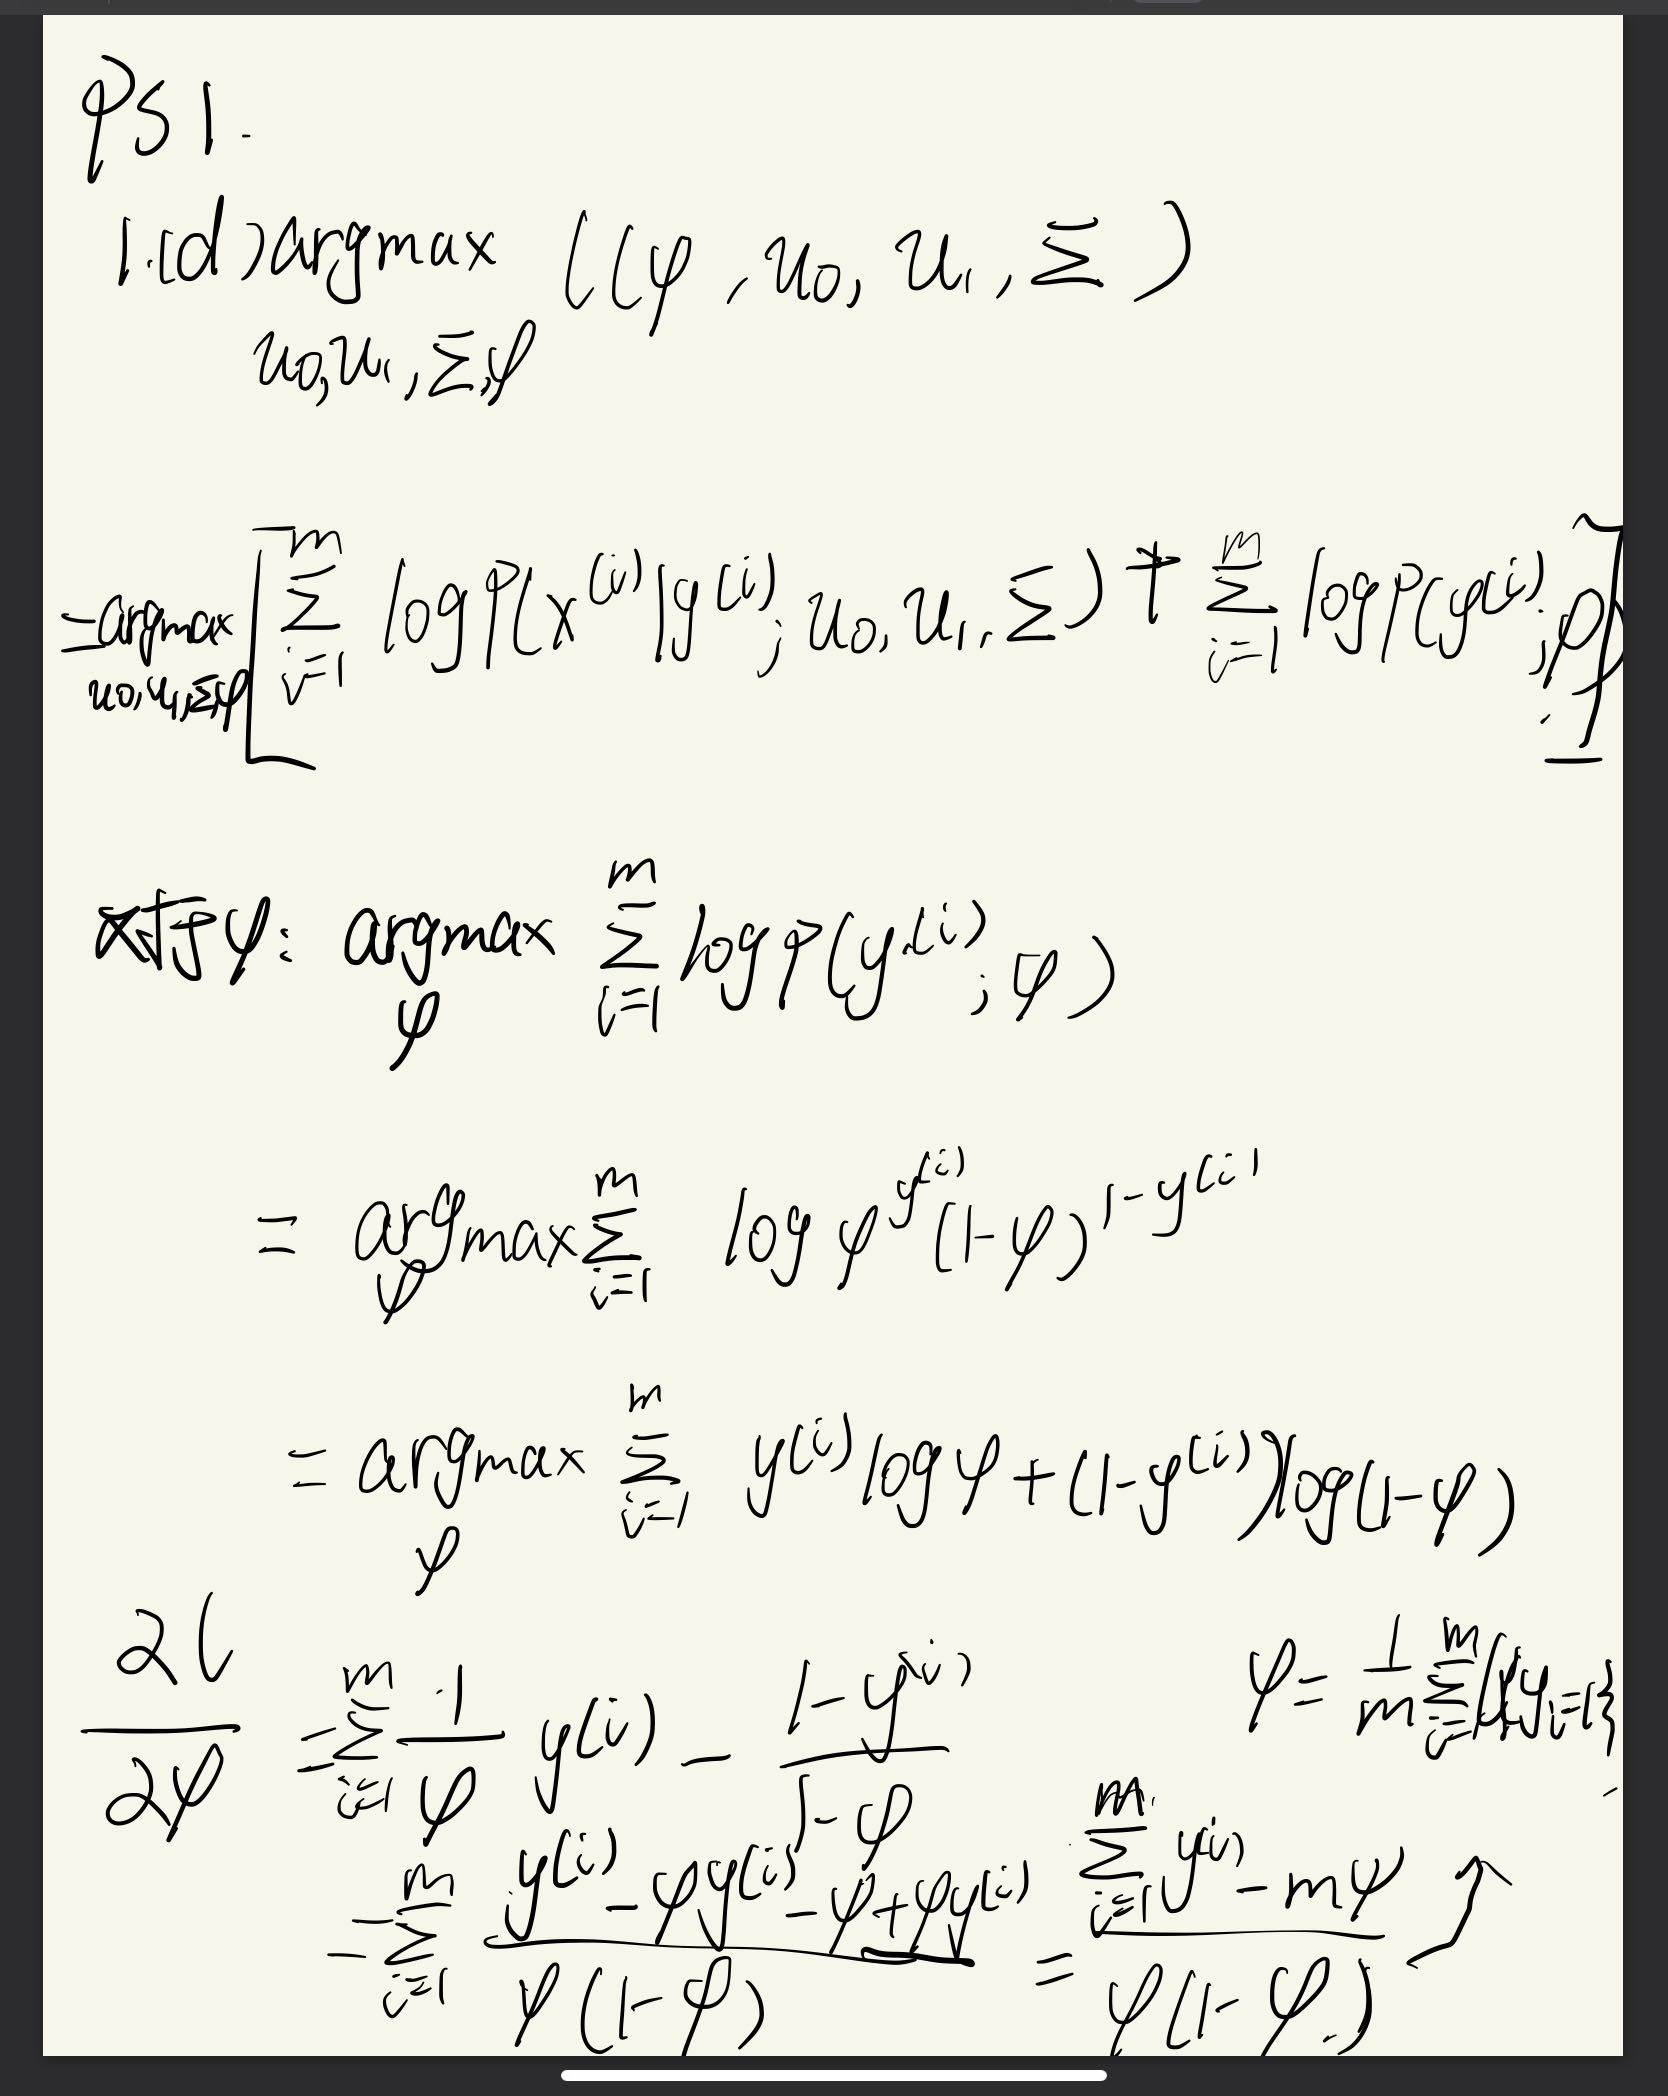 PS1.
1.(d) argmax l(φ, u₀, u₁, Σ)
u₀,u₁,Σ,φ
= argmax [ Σ_{i=1}^{m} log P(x^{(i)}|y^{(i)}; u₀, u₁, Σ) + Σ_{i=1}^{m} log P(y^{(i)}; φ) ]
u₀,u₁,Σ,φ
对于φ: argmax_φ Σ_{i=1}^{m} log P(y^{(i)}; φ)
= argmax_φ Σ_{i=1}^{m} log φ^{y^{(i)}} (1-φ)^{1-y^{(i)}}
= argmax_φ Σ_{i=1}^{m} y^{(i)} log φ + (1-y^{(i)}) log(1-φ)
∂l/∂φ = Σ_{i=1}^{m} \frac{1}{φ} y^{(i)} - \frac{1-y^{(i)}}{1-φ}
φ = \frac{1}{m} Σ_{i=1}^{m} 1{y_i=1}
= Σ_{i=1}^{m} \frac{y^{(i)} - φy^{(i)} - φ + φy^{(i)}}{φ(1-φ)} = \frac{Σ_{i=1}^{m} y^{(i)} - mφ}{φ(1-φ)}